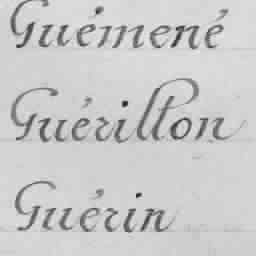 Guémené
Guérillon
Guérin